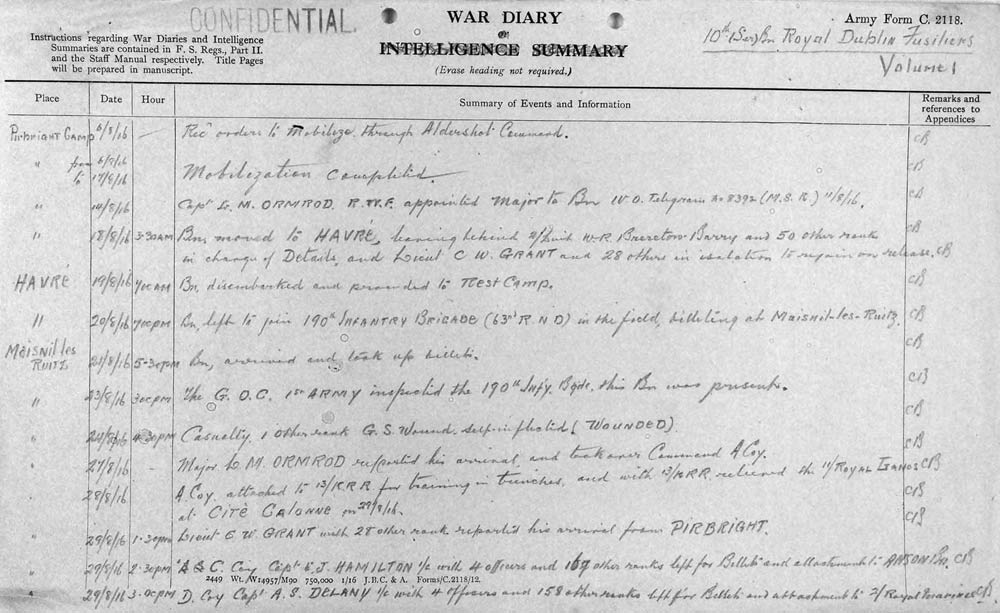 CONFIDENTIAL.
WAR DIARY
or
INTELLIGENCE SUMMARY
(Erase heading not required.)
Army Form C. 2118.
10th (Ser) Bn Royal Dublin Fusiliers
Volume 1
Instructions regarding War Diaries and Intelligence
Summaries are contained in F. S. Regs., Part II.
and the Staff Manual respectively. Title Pages
will be prepared in manuscript.
Place Date Hour Summary of Events and Information Remarks and references to Appendices
Pirbright Camp 6/8/16 — Recd orders to Mobilize through Aldershot Command. CB
" from
to 17/8/16 Mobilization Completed. CB
" 14/8/16 Capt L. M. ORMROD. R.W.F. appointed Major to Bn W.O. Telegram No 8392 (M.S.R.) 11/8/16. CB
" 18/8/16 3-30AM Bn. moved to HAVRÉ, leaving behind W.R. Brereton-Barry and 50 other rank CB
in charge of Details, and Lieut C W. GRANT and 28 others in isolation to rejoin on release. CB
HAVRÉ 19/8/16 7.00AM Bn. disembarked and proceeded to Rest Camp. CB
" 20/8/16 7.00PM Bn. left to join 190th INFANTRY BRIGADE (63rd R.N.D) in the field, billeting at Maisnil-les-Ruitz. CB
Maisnil les
RUITZ 21/8/16 5-30pm Bn, arrived and took up billets. CB
" 23/8/16 3.00pm The G.O.C. 1st ARMY inspected the 190th Infy. Bgde, this Bn was present. CB
" 4.30pm Casualty, 1 Other rank G.S. Wound. self inflicted (WOUNDED). CB
27/8/16 Major L. M. ORMROD reported his arrival, and took over Command A Coy. CB
" 28/8/16 A. Coy, attached to 13/KRR for training in trenches, and with 13/KRR relieved the 11/ROYAL CB
at CITÉ CALONNE on 28/8/16. CB
" 29/8/16 1-30pm Lieut C W. GRANT with 28 other rank reported his arrival from PIRBRIGHT.
" 29/8/16 2-30PM C. Coy Capt J. HAMILTON I/c with 4 officers and other ranks left for and attachment to ANSON Bn. CB
2449 Wt. W14957/M90 750,000 1/16 J.B.C. & A. Forms/C.2118/12.
" 29/8/16 3-00PM D. Coy Capt A. S. DELANY I/c with 4 Officers and 158 other ranks left for and attachment to CB.